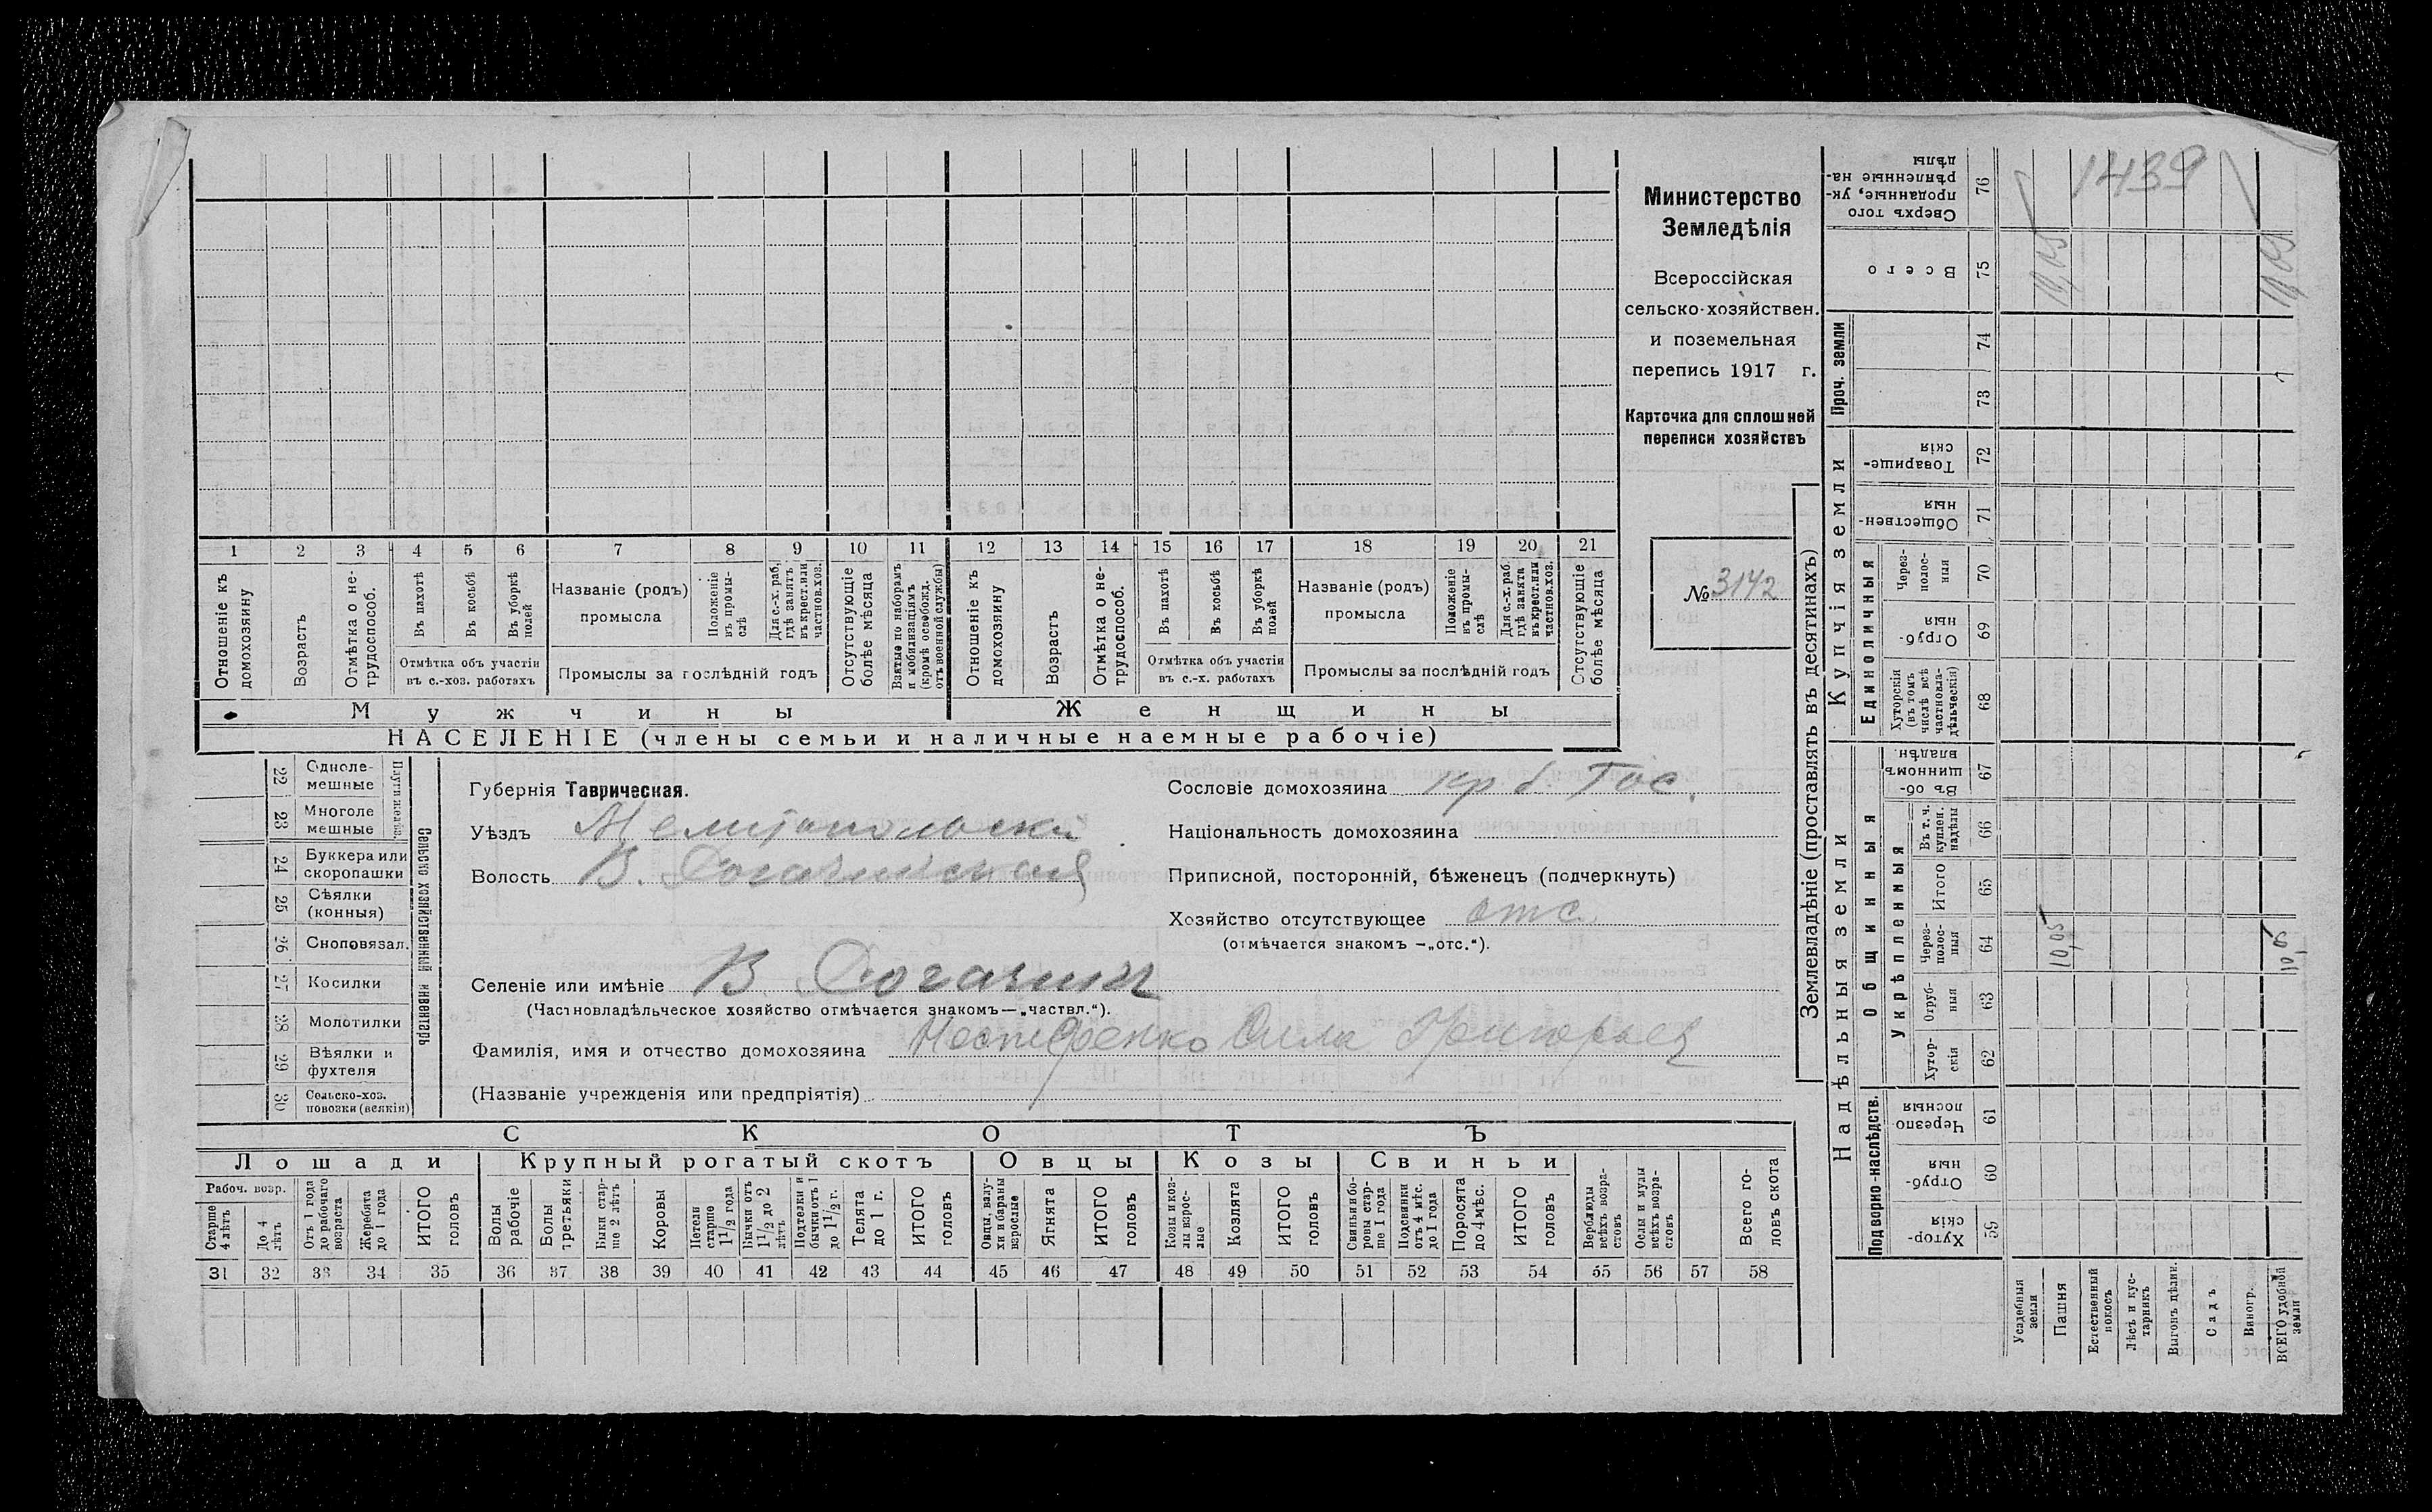 1439
Министерство
Земледѣлія
Всероссійская
сельско-хозяйствен.
и поземельная
перепись 1917 г.
Карточка для сплошной
переписи хозяйствъ
№ 3142
1 2 3 4 5 6 7 8 9 10 11 12 13 14 15 16 17 18 19 20 21
Отношеніе къ домохозяину
Возрастъ
Отмѣтка о не-трудоспособ.
Въ пахотѣ
Въ косьбѣ
Въ уборкѣ полей
Отмѣтка объ участіи
въ с.-хоз. работахъ
Названіе (родъ)
промысла
Положеніе въ промы-слѣ
Для с.-х. раб. гдѣ занятъ въ крест. или частнов. хоз.
Промыслы за послѣдній годъ
Отсутствующіе болѣе мѣсяца
Взятые по наборамъ и мобилизаціямъ (кромѣ освобожд. отъ военной службы)
Отношеніе къ домохозяину
Возрастъ
Отмѣтка о не-трудоспособ.
Въ пахотѣ
Въ косьбѣ
Въ уборкѣ полей
Отмѣтка объ участіи
въ с.-х. работахъ
Названіе (родъ)
промысла
Положеніе въ промы-слѣ
Для с.-х. раб. гдѣ занята въ крест. или частнов. хоз.
Промыслы за послѣдній годъ
Отсутствующіе болѣе мѣсяца
Мужчины
Женщины
НАСЕЛЕНІЕ (члены семьи и наличные наемные рабочіе)
22 Одноле-мешные
23 Многоле мешные
24 Буккера или скоропашки
25 Сѣялки (конныя)
26 Сноповязал.
27 Косилки
28 Молотилки
29 Вѣялки и фухтеля
30 Сельско-хоз. повозки (всякія)
Сельско хозяйственный инвентарь
Губернія Таврическая.
Уѣздъ Мелитопольскій
Волость В. Рогачинская
Сословіе домохозяина кр. б. Гос.
Національность домохозяина
Приписной, посторонній, бѣженецъ (подчеркнуть)
Хозяйство отсутствующее отс.
(отмѣчается знакомъ —„отс.“).
Селеніе или имѣніе В Рогачик
(Частновладѣльческое хозяйство отмѣчается знакомъ—„частвл.“).
Фамилія, имя и отчество домохозяина Нестеренко Григорьев
(Названіе учрежденія или предпріятія)
СКОТЪ
Лошади
Крупный рогатый скотъ
Овцы
Козы
Свиньи
Рабоч. возр.
Старше 4 лѣтъ
До 4 лѣтъ
Отъ 1 года до рабочаго возраста
Жеребята до 1 года
ИТОГО головъ
Волы рабочіе
Волы третьяки
Быки стар-ше 2 лѣтъ
Коровы
Нетели старше 1½ года
Бычки отъ 1½ до 2 лѣтъ
Подтелки и бычки отъ 1 до 1½ г.
Телята до 1 г.
ИТОГО головъ
Овцы, валу-хи и бараны взрослые
Ягнята
ИТОГО головъ
Козы и коз-лы взрос-лые
Козлята
ИТОГО головъ
Свиньи и бо-ровы стар-ше 1 года
Подсвинки отъ 4 мѣс. до 1 года
Поросята до 4 мѣс.
ИТОГО головъ
Верблюды всѣхъ возра-стовъ
Ослы и мулы всѣхъ возра-стовъ
Всего го-ловъ скота
31 32 33 34 35 36 37 38 39 40 41 42 43 44 45 46 47 48 49 50 51 52 53 54 55 56 57 58
Землевладѣніе (проставлять въ десятинахъ)
Надѣльныя земли
Купчія земли
Проч. земли
Подворно-наслѣдств.
Общинныя
Укрѣпленныя
Единоличныя
Сверхъ того проданные, ук-рѣпленные на-дѣлы 76
Всего 75
74
73
Товарище-скія 72
Обществен-ныя 71
Через-полос-ныя 70
Отруб-ныя 69
Хуторскія (въ томъ числѣ всѣ частновла-дѣльческія) 68
Въ об-щинномъ владѣн. 67
Въ т. ч. куплен. надѣлы 66
Итого 65
Через-полос-ныя 64
Отруб-ныя 63
Хутор-скія 62
Черезпо-лосныя 61
Отруб-ныя 60
Хутор-скія 59
10,05
10,05
10,05
10,05
Усадебныя земли
Пашня
Естественный покосъ
Лѣсъ и кус-тарникъ
Выгонъ цѣлин.
Садъ
Виногр.
ВСЕГО удобной земли